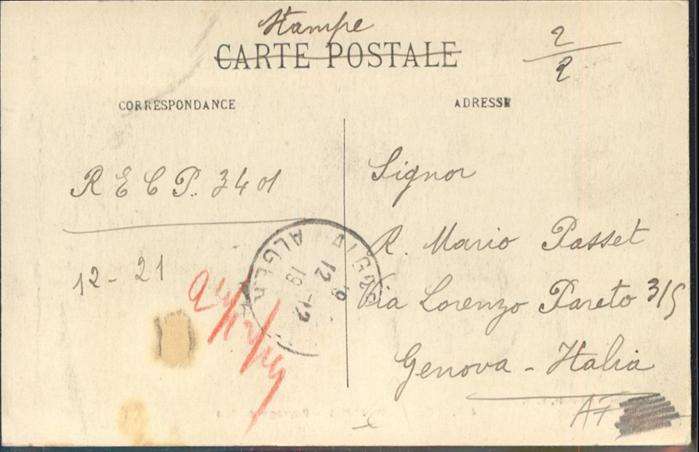 Stampe
CARTE POSTALE
2
2
CORRESPONDANCE
ADRESSE
R E C P. 3401
12-21
Signor
R. Mario Passet
Via Lorenzo Pareto 3/5
Genova - Italia
ALGER
12
19
A7